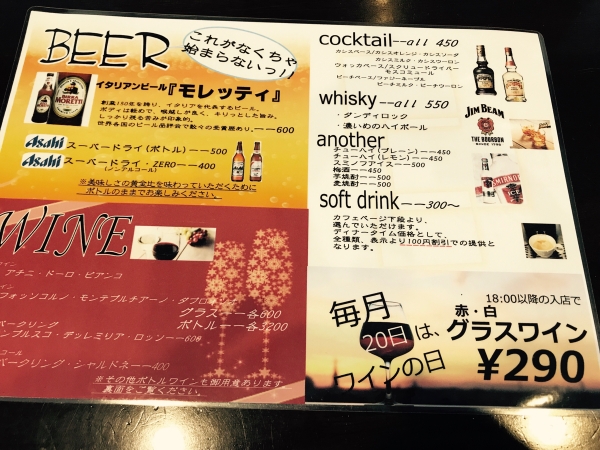 BEER
これがなくちゃ
始まらないっ!!
イタリアンビール『モレッティ』
創業150年を誇り、イタリアを代表するビール。
ボディは軽めで、喉越しが良く、キリっとした旨み。
しっかり残る苦みが印象的。
世界各国のビール品評会で数々の受賞歴あり。――600
BIRRA MORETTI
Asahi スーパードライ(ボトル)――500
Asahi スーパードライ・ZERO――400
(ノンアルコール)
※美味しさの黄金比を味わっていただくために
ボトルのままでお楽しみください。
WINE
アチニ・ドーロ・ビアンコ
フォッソコルノ・モンテプルチアーノ・ダブロ
グラス――各600
ボトル――各3200
パークリング
ンブルスコ・デッレミリア・ロッソ――600
コール
パークリング・シャルドネ――400
※その他ボトルワインも御用意あります
裏面をご覧ください。
cocktail――all 450
カシスベース/カシスオレンジ・カシスソーダ
カシスミルク・カシスウーロン
ウォッカベース/スクリュードライバー
モスコミュール
ピーチベース/ファジーネーブル
ピーチミルク・ピーチウーロン
whisky――all 550
・ダンディロック
・濃いめのハイボール
JIM BEAM
THE BOURBON
SINCE 1795
another
チューハイ(プレーン)――450
チューハイ(レモン)――450
スミノフアイス――600
梅酒――450
芋焼酎――500
麦焼酎――500
SMIRNOFF
soft drink――300～
カフェページ下段より、
選んでいただけます。
ディナータイム価格として、
全種類、表示より100円割引での提供と
なります。
18:00以降の入店で
毎月
20日は、
ワインの日
赤・白
グラスワイン
¥290